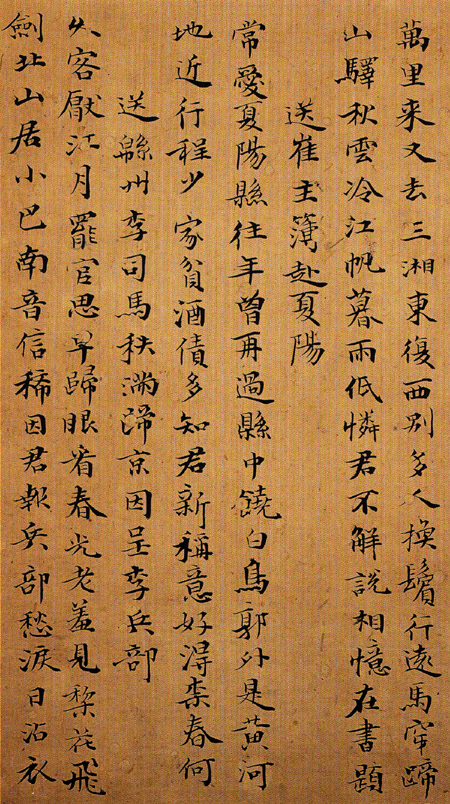 萬里来又去三湘東復西別多人換鬢行遠馬穿蹄
山驛秋雲冷江帆暮雨低憐君不解說相憶在書題
送崔主簿赴夏陽
常愛夏陽縣往年曾再過縣中饒白鳥郭外是黃河
地近行程少家貧酒債多知君新稱意好淂柰春何
送緜州李司馬秩滿歸京因呈李兵部
久客厭江月罷官思早歸眼看春光老羞見梨花飛
劍北山居小巴南音信稀因君報兵部愁淚日沾衣